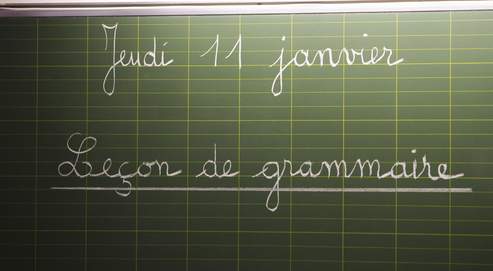 Jeudi 11 janvier
Leçon de grammaire